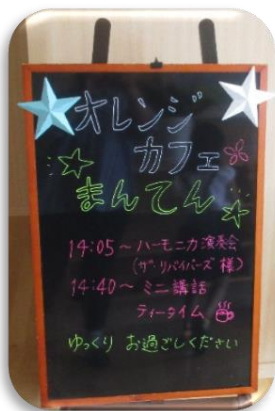 オレンジ
カフェ
まんてん
14:05～ ハーモニカ演奏会
(ザ・リバイバーズ 様)
14:40～ ミニ講話
ティータイム
ゆっくり お過ごしください